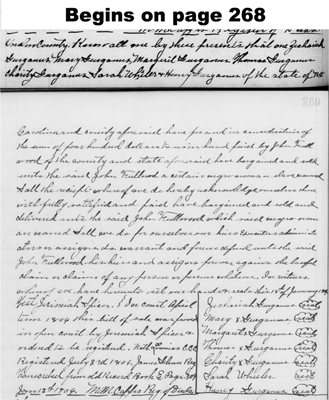 Begins on page 268
Onslow County. Know all men by these presents that we Zachariah
Gurganus Mary Gurganus, Margarit Gurganus Thomas Gurganus
Charity Gurganus Sarah Wheler & Henry Gurganus of the state of No
269
Carolina and county aforesaid have for and in consideration of
the sum of four hundred dollars to us in hand paid by John Full
wood of the county and state aforesaid have bargained and sold
unto the said John Fullwood a certain negro woman slave named
Sall the receipt whereof we do hereby acknowledge ourselves there
with fully satisfied and paid have bargained and sold and
delivered unto the said John Fullwood which said negro wom
an named Sall we do for ourselves our heirs executors adminis
ators assigns do warrant and forever defend unto the said
John Fullwood his heirs and assigns forever against the lawful
claim or claims of any person or persons whatever. In witness
whereof we have hereunto set our hands & seals this 18th of January 1804
Test. Jeremiah Spicer. } On. Court April
term 1804 this bill of sale was proved
in open court by Jeremiah Spicer &
ordered to be registered. Nath Loomiss C.C.C.
Registered July 3rd 1804. James Register
Transcribed from old Record Book E Page 30
June 13th 1904. M.M. Capps Reg of Deeds
Zachariah Gurganus seal
Mary X Gurganus seal
Margarit Gurganus seal
Thomas Gurganus seal
Charity X Gurganus seal
Sarah Wheeler seal
Henry Gurganus seal